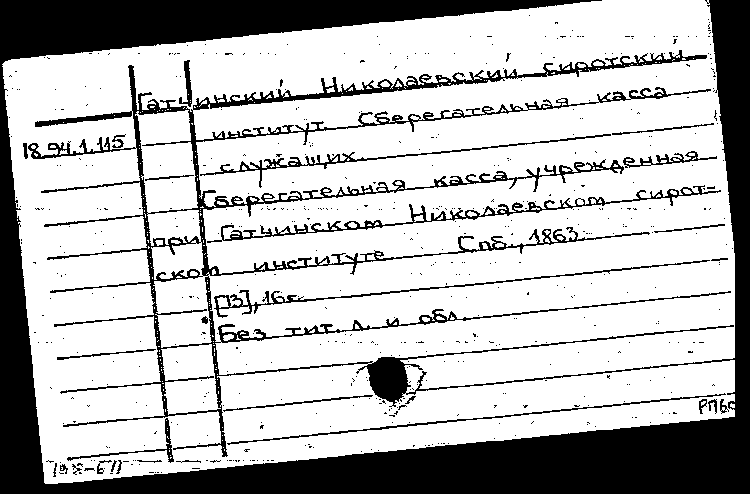 Гатчинский Николаевский сиротский
институт. Сберегательная касса
18.94.1.115
служащих.
Сберегательная касса, учрежденная
при Гатчинском Николаевском сирот=
ском институте. Спб., 1863.
[13], 16 с.
Без тит. л. и обл.